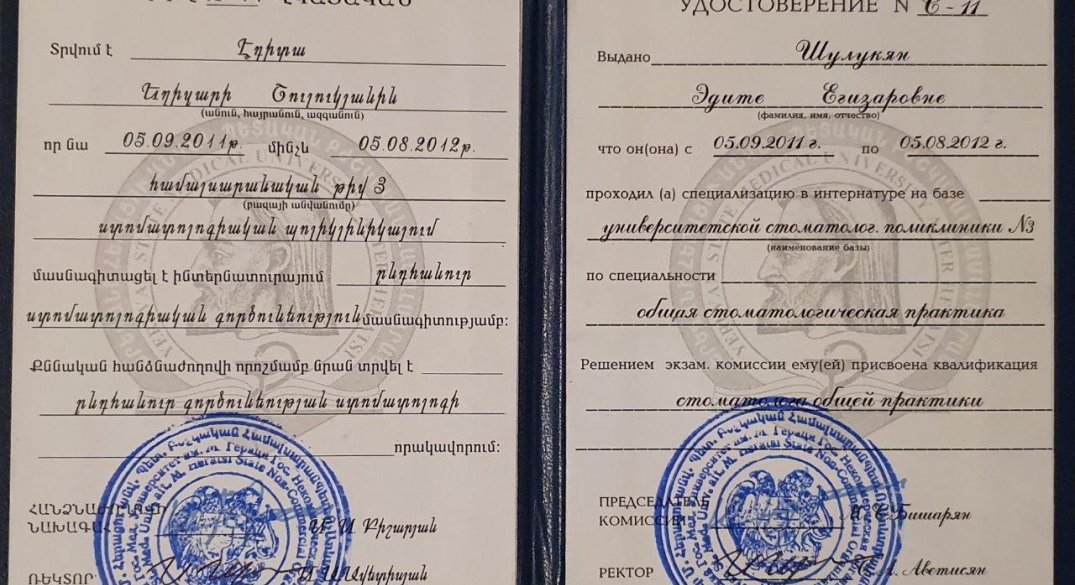 Տրվում է Էդիտա
Եղիզարի Շուլուկյանին
(անուն, հայրանուն, ազգանուն)
որ նա 05.09.2011թ. մինչև 05.08.2012թ.
համալսարանական թիվ 3
(բազայի անվանումը)
ստոմատոլոգիական պոլիկլինիկայում
մասնագիտացել է ինտերնատուրայում ընդհանուր
ստոմատոլոգիական գործունեություն մասնագիտությամբ:
Քննական հանձնաժողովի որոշմամբ նրան տրվել է
ընդհանուր գործունեության ստոմատոլոգի
որակավորում:
ՀԱՆՁՆԱԺՈՂՈՎԻ
ՆԱԽԱԳԱՀ Ա.Ս. Բիշարյան
ՌԵԿՏՈՐ Ավետիսյան
УДОСТОВЕРЕНИЕ N С-11
Выдано Шулукян
Эдите Егизаровне
(фамилия, имя, отчество)
что он(она) с 05.09.2011 г. по 05.08.2012 г.
проходил (а) специализацию в интернатуре на базе
университетской стоматолог. поликлиники №3
(наименование базы)
по специальности
общая стоматологическая практика
Решением экзам. комиссии ему(ей) присвоена квалификация
стоматолога общей практики
ПРЕДСЕДАТЕЛЬ
КОМИССИИ Бишарян
РЕКТОР Аветисян